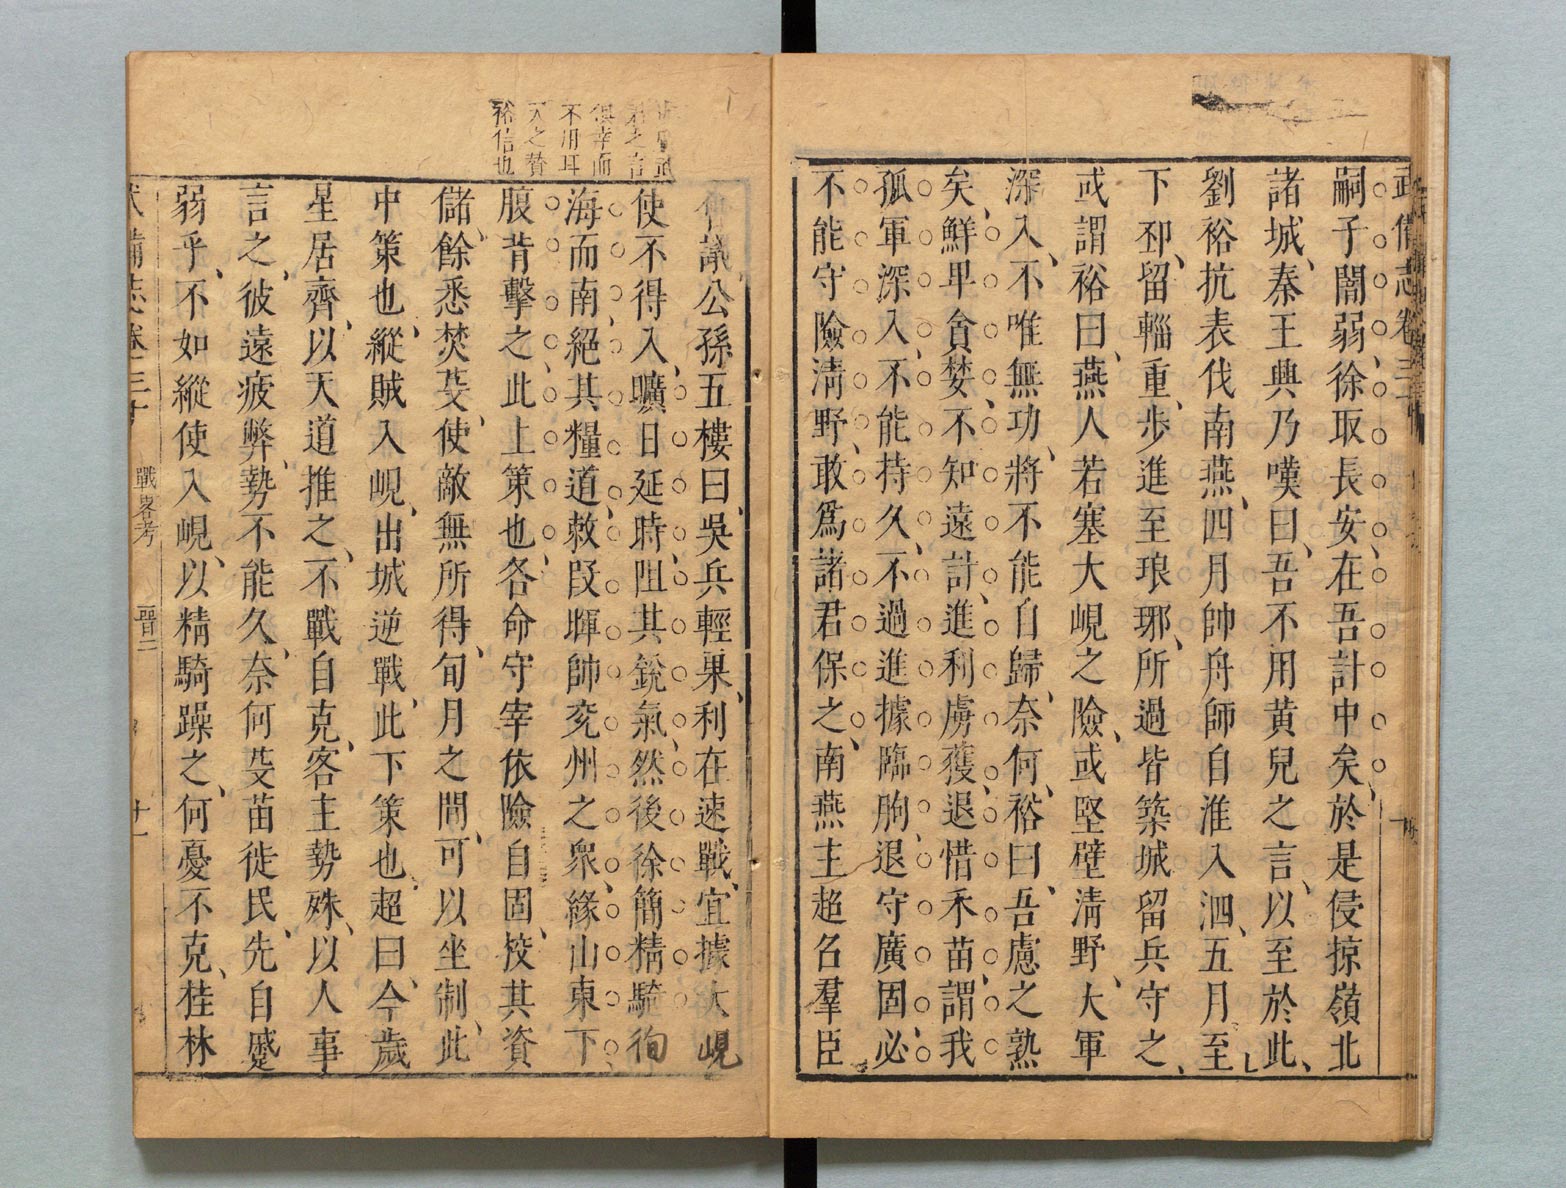 武備志卷三十
嗣子闇弱徐取長安在吾計中矣於是侵掠嶺北
諸城秦王興乃嘆曰吾不用黃兒之言以至於此
劉裕抗表伐南燕四月帥舟師自淮入泗五月至
下邳留輜重步進至琅琊所過皆築城留兵守之
或謂裕曰燕人若塞大峴之險或堅壁清野大軍
深入不唯無功將不能自歸奈何裕曰吾慮之熟
矣鮮卑貪婪不知遠計進利虜獲退惜禾苗謂我
孤軍深入不能持久不過進據臨朐退守廣固必
不能守險清野敢為諸君保之南燕主超名羣臣
會議公孫五樓曰吳兵輕果利在速戰宜據大峴
使不得入曠日延時阻其銳氣然後徐簡精騎徇
海而南絕其糧道敕段暉帥兗州之眾緣山東下
腹背擊之此上策也各命守宰依險自固按其資
儲餘悉焚芟使敵無所得旬月之間可以坐制此
中策也縱賊入峴出城逆戰此下策也超曰今歲
星居齊以天道推之不戰自克客主勢殊以人事
言之彼遠疲弊勢不能久奈何芟苗徙民先自蹙
弱乎不如縱使入峴以精騎躁之何憂不克桂林
武備志卷三十 戰畧考 晉二 十一
之言
倶幸而
不用耳
天之贊
裕信也